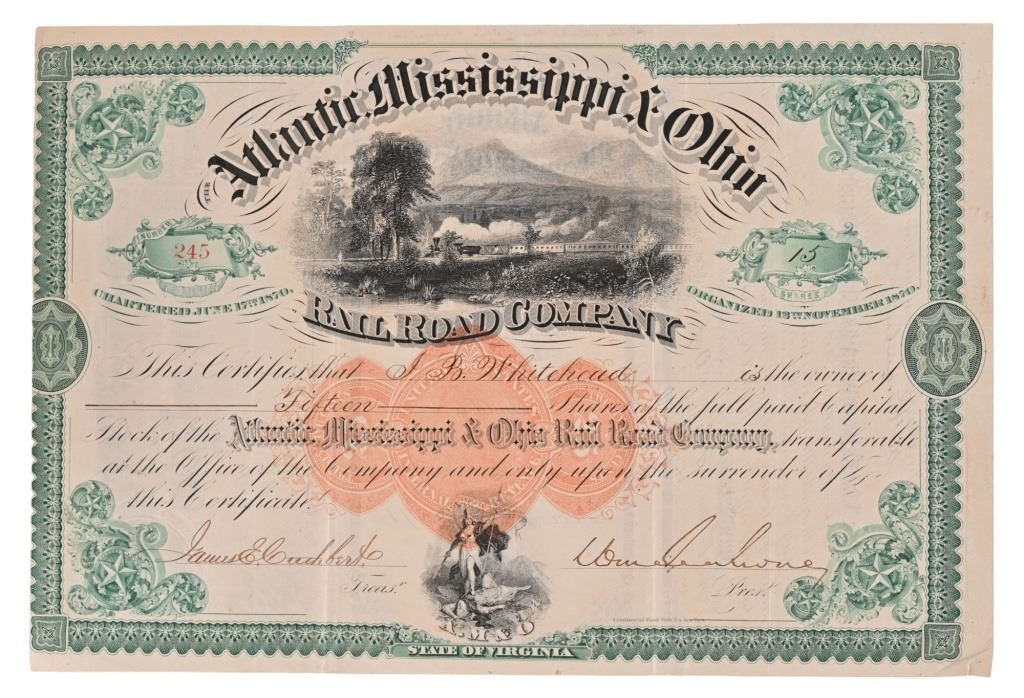 THE Atlantic, Mississippi & Ohio
NUMBER
245
15
SHARES
CHARTERED JUNE 17TH 1870.
ORGANIZED 13TH NOVEMBER 1870.
RAIL ROAD COMPANY
This Certifies that J B. Whitehead is the owner of
Fifteen Shares of the full paid Capital
Stock of the Atlantic, Mississippi & Ohio Rail Road Company, transferable
at the Office of the Company and only upon the surrender of
this Certificate.
INTERNAL REVENUE
James E Cuthbert
Treasr.
Wm Mahone
Prest.
A. M & O
STATE OF VIRGINIA